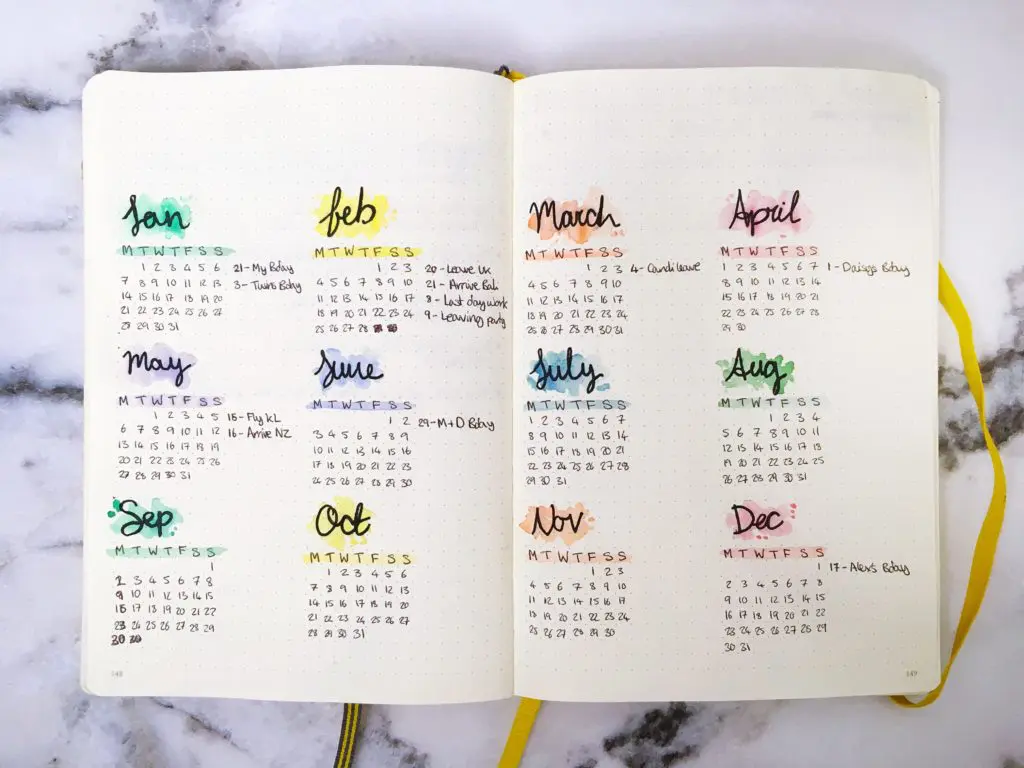 Jan
M T W T F S S
1 2 3 4 5 6
7 8 9 10 11 12 13
14 15 16 17 18 19 20
21 22 23 24 25 26 27
29 30 31
21 - My Bday
3 - Twins Bday
Feb
M T W T F S S
1 2 3
4 5 6 7 8 9 10
11 12 13 14 15 16 17
18 19 20 21 22 23 24
25 26 27 28
20 - Leave UK
21 - Arrive Bali
8 - Last day work
9 - Leaving party
March
M T W T F S S
1 2 3
4 5 6 7 8 9 10
11 12 13 14 15 16 17
18 19 20 21 22 23 24
25 26 27 28 29 30 31
4 - Candi leave
April
M T W T F S S
1 2 3 4 5 6 7
8 9 10 11 12 13 14
15 16 17 18 19 20 21
22 23 24 25 26 27 28
29 30
1 - Daisys Bday
May
M T W T F S S
1 2 3 4 5
6 7 8 9 10 11 12
13 14 15 16 17 18 19
20 21 22 23 24 25 26
27 28 29 30 31
15 - Fly KL
16 - Arrive NZ
June
M T W T F S S
1 2
3 4 5 6 7 8 9
10 11 12 13 14 15 16
17 18 19 20 21 22 23
24 25 26 27 28 29 30
29 - M+D Bday
July
M T W T F S S
1 2 3 4 5 6 7
8 9 10 11 12 13 14
15 16 17 18 19 20 21
22 23 24 25 26 27 28
29 30 31
Aug
M T W T F S S
1 2 3 4
5 6 7 8 9 10 11
12 13 14 15 16 17 18
19 20 21 22 23 24 25
26 27 28 29 30 31
Sep
M T W T F S S
1
2 3 4 5 6 7 8
9 10 11 12 13 14 15
16 17 18 19 20 21 22
23 24 25 26 27 28 29
30
Oct
M T W T F S S
1 2 3 4 5 6
7 8 9 10 11 12 13
14 15 16 17 18 19 20
21 22 23 24 25 26 27
28 29 30 31
Nov
M T W T F S S
1 2 3
4 5 6 7 8 9 10
11 12 13 14 15 16 17
18 19 20 21 22 23 24
25 26 27 28 29 30
Dec
M T W T F S S
1
2 3 4 5 6 7 8
9 10 11 12 13 14 15
16 17 18 19 20 21 22
23 24 25 26 27 28 29
30 31
17 - Alex's Bday
148
149